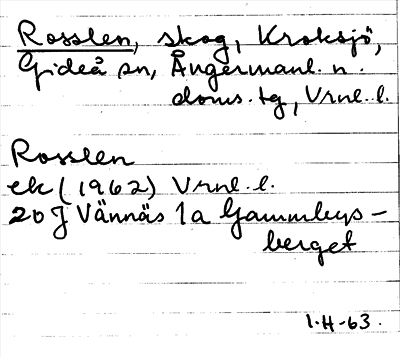 Rosslen, skog, Kroksjö,
Gideå sn, Ångermanl. n.
doms. tg, Vrnl. l.
Rosslen
ek (1962) Vrnl. l.
20J Vännäs 1a Gammbyns-
berget
1.H-63.